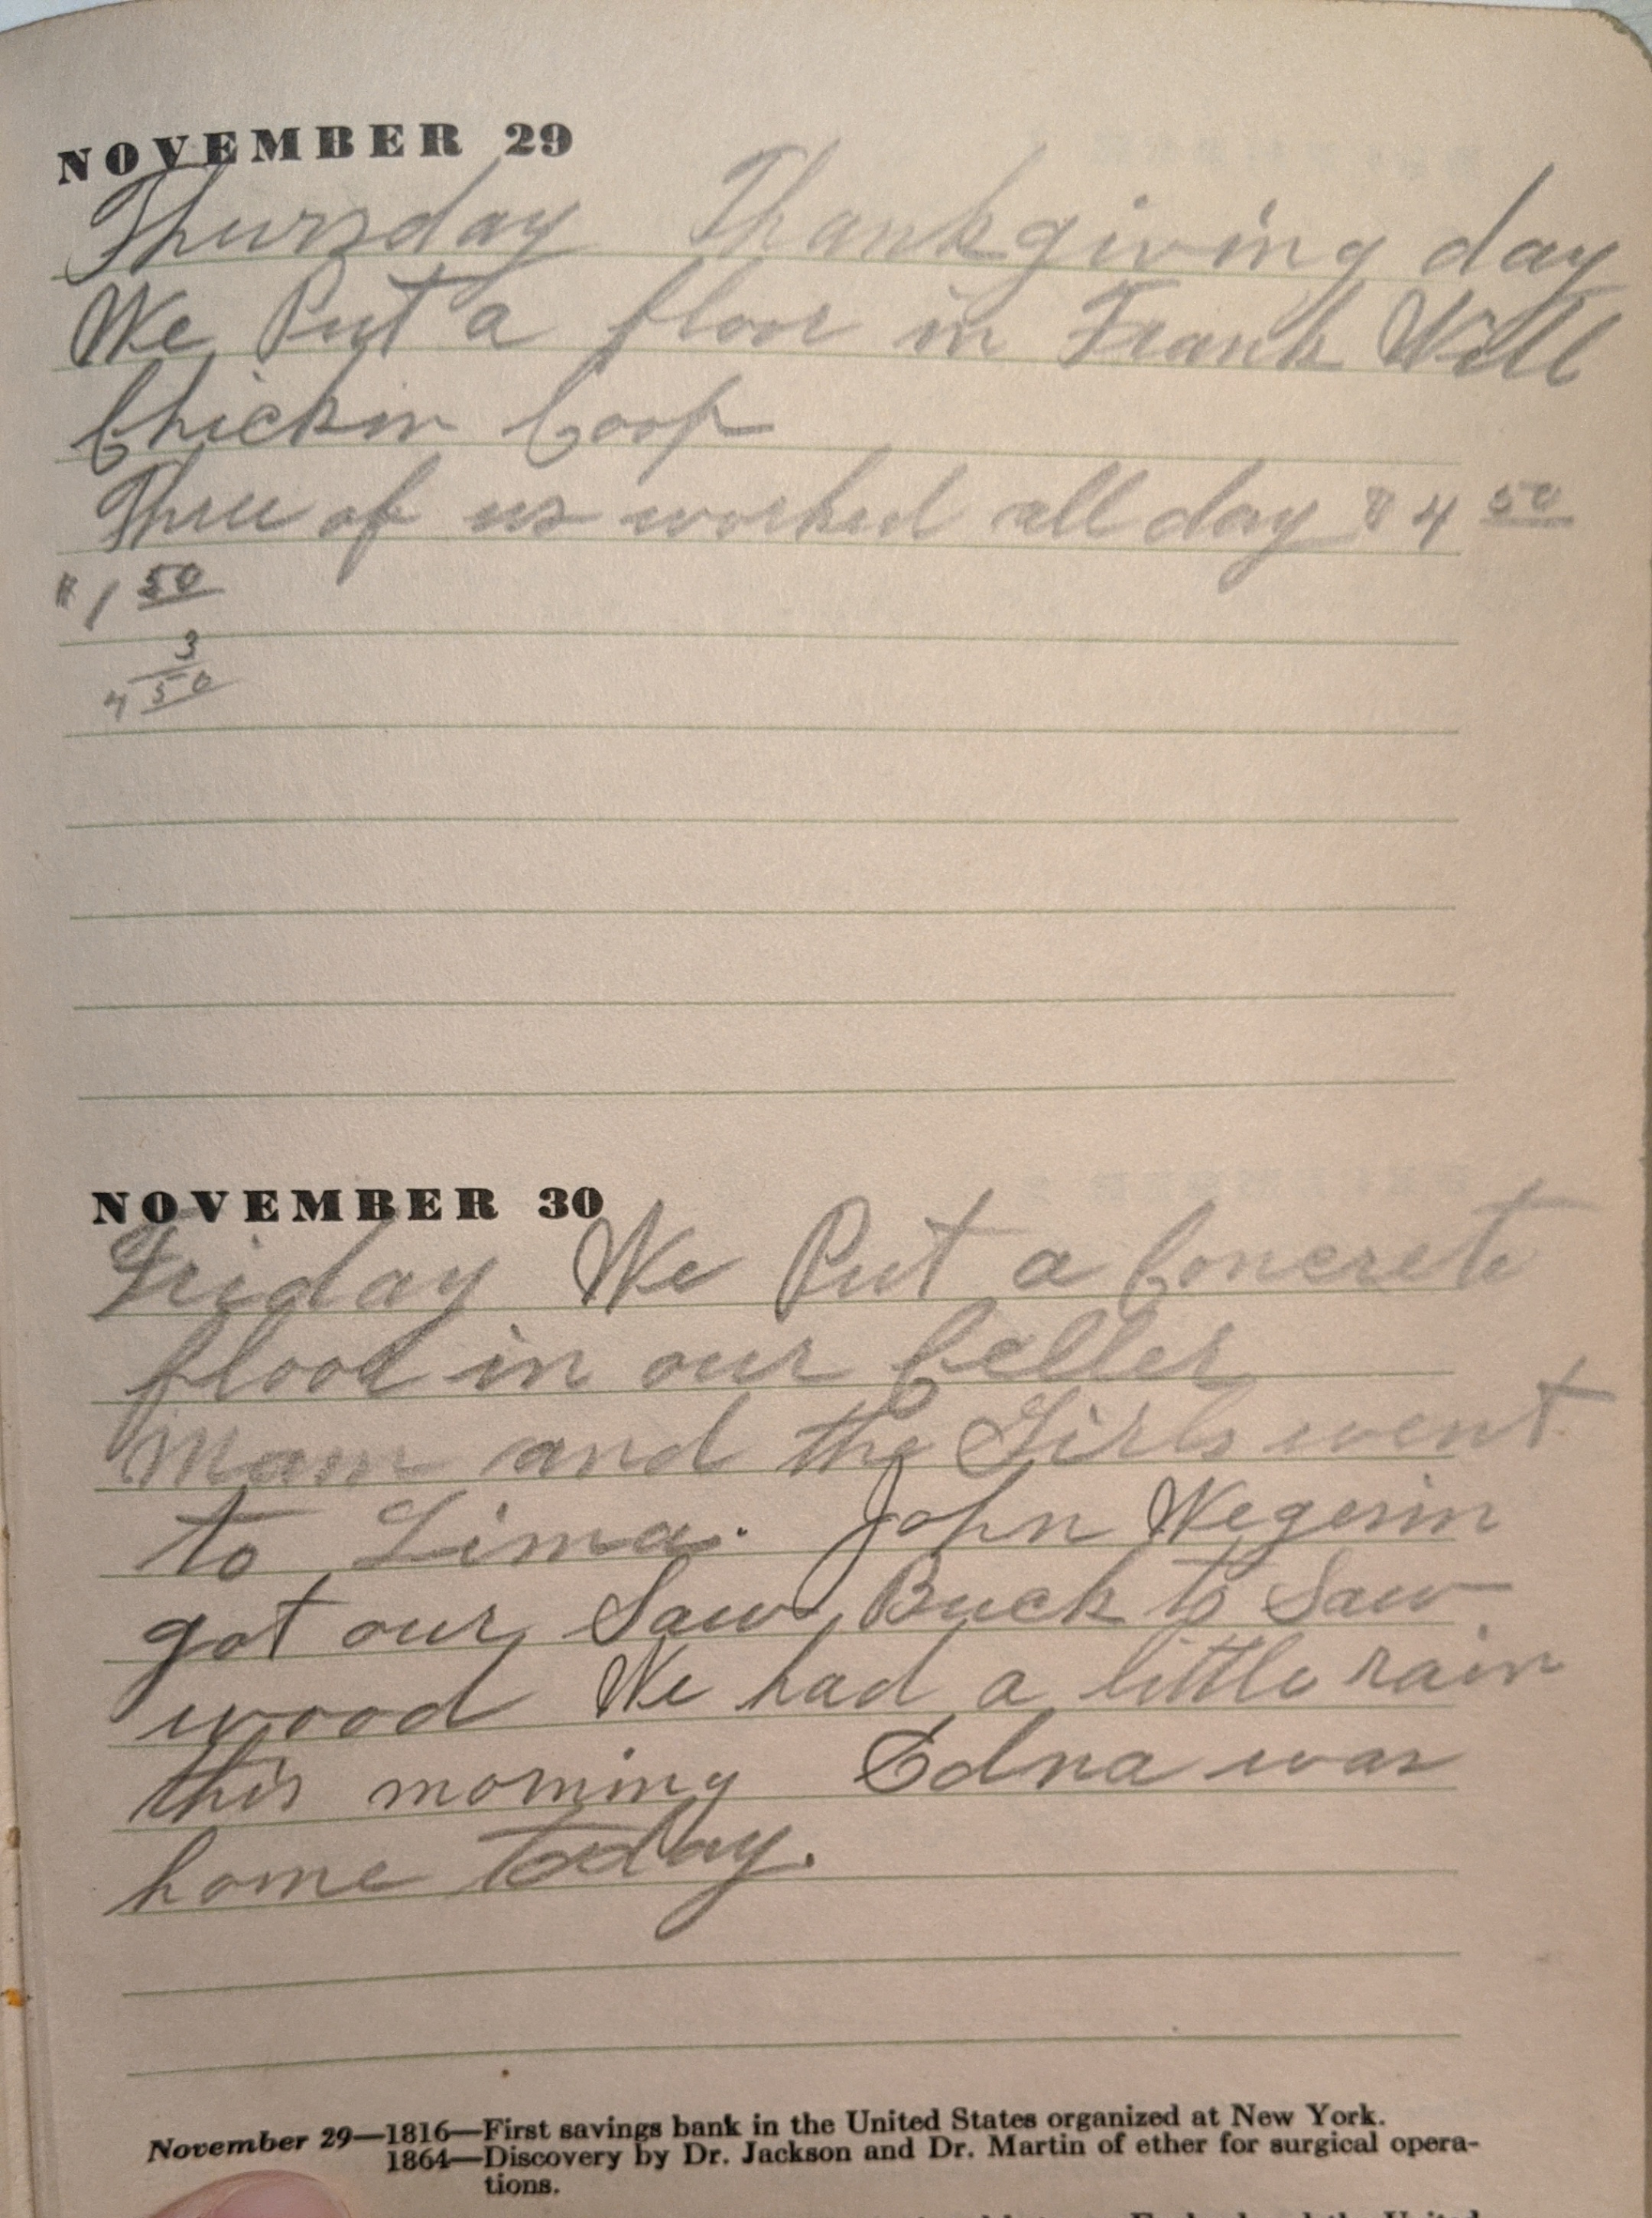 NOVEMBER 29
Thursday Thankgiving day
We Put a floor in Frank Will
Chickin Coop
Three of us worked all day $4 50
$1 50
3
4 50
NOVEMBER 30
Friday We Put a Concrete
floor in our Celler
Mam and the Girls went
to Lima. John Wegerin
got our Saw Buck to Saw
wood We had a little rain
this morning Edna was
home today.
November 29—1816—First savings bank in the United States organized at New York.
1864—Discovery by Dr. Jackson and Dr. Martin of ether for surgical opera-
tions.